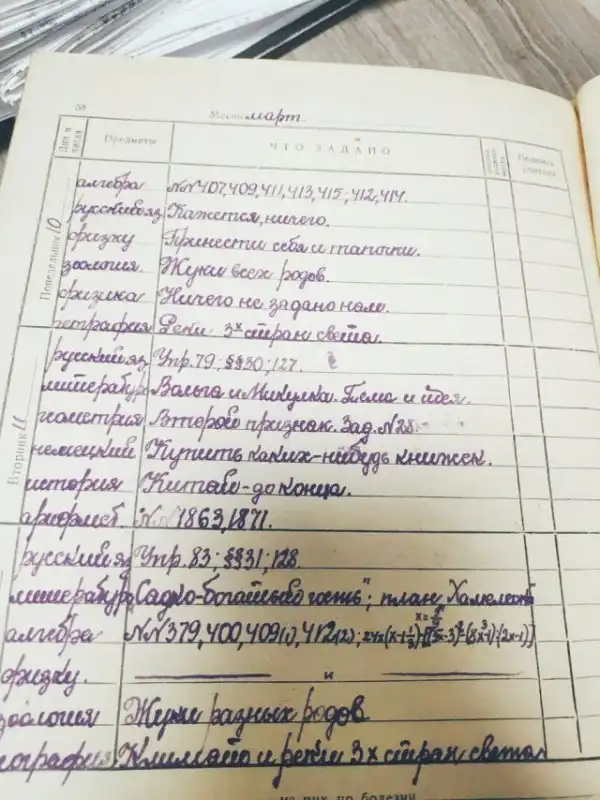 38 Месяц март.
Дни и числа Предметы ЧТО ЗАДАНО
Понедельник 10
алгебра №№407,409,411,413,415; 412,414.
русский яз Кажется, ничего.
физку Принести себя и тапочки.
зоология. Жуки всех родов.
физика Ничего не задано нам.
география Реки 3х стран света.
Вторник 11
русский яз Упр.79; §§30;127.
литерату Вольга и Микулка. Тема и идея.
геометрия Второй признак. Зад.№28.
немецкий Купить каких-нибудь книжек.
история Китай-до конца.
арифмет. №№1863,1871.
русский яз Упр. 83; §§31,128.
литература „Садко-богатый гость"; план Хамелеона
алгебра №№379,400,409(1),412(2);
физку. и
зоология Жуки разных родов
география Климат и реки 3х стран света